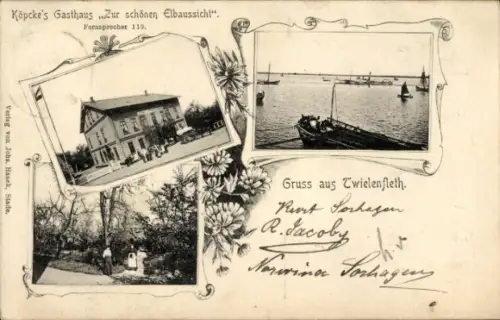 Köpcke's Gasthaus „Zur schönen Elbaussicht".
Fernsprecher 112.
Verlag von Johs. Hanek, Stade.
Gruss aus Twielenfleth.
Kurt Sorhagen
R. Jacoby
Sorhagen